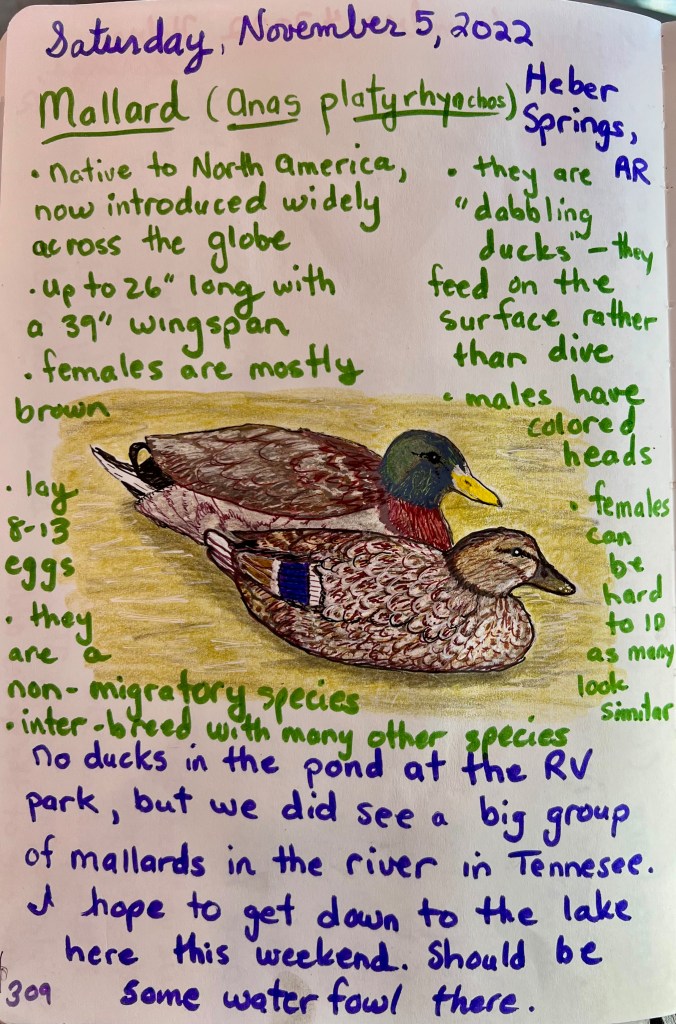 Saturday, November 5, 2022
Mallard (Anas platyrhynchos)
Heber
Springs,
AR
• native to North America,
now introduced widely
across the globe
• up to 26" long with
a 39" wingspan
• females are mostly
brown
• lay
8-13
eggs
• they
are a
non-migratory species
• inter-breed with many other species
• they are
"dabbling
ducks" - they
feed on the
surface rather
than dive
• males have
colored
heads
• females
can
be
hard
to ID
as many
look
similar
no ducks in the pond at the RV
park, but we did see a big group
of mallards in the river in Tennesee.
I hope to get down to the lake
here this weekend. Should be
some water fowl there.
309